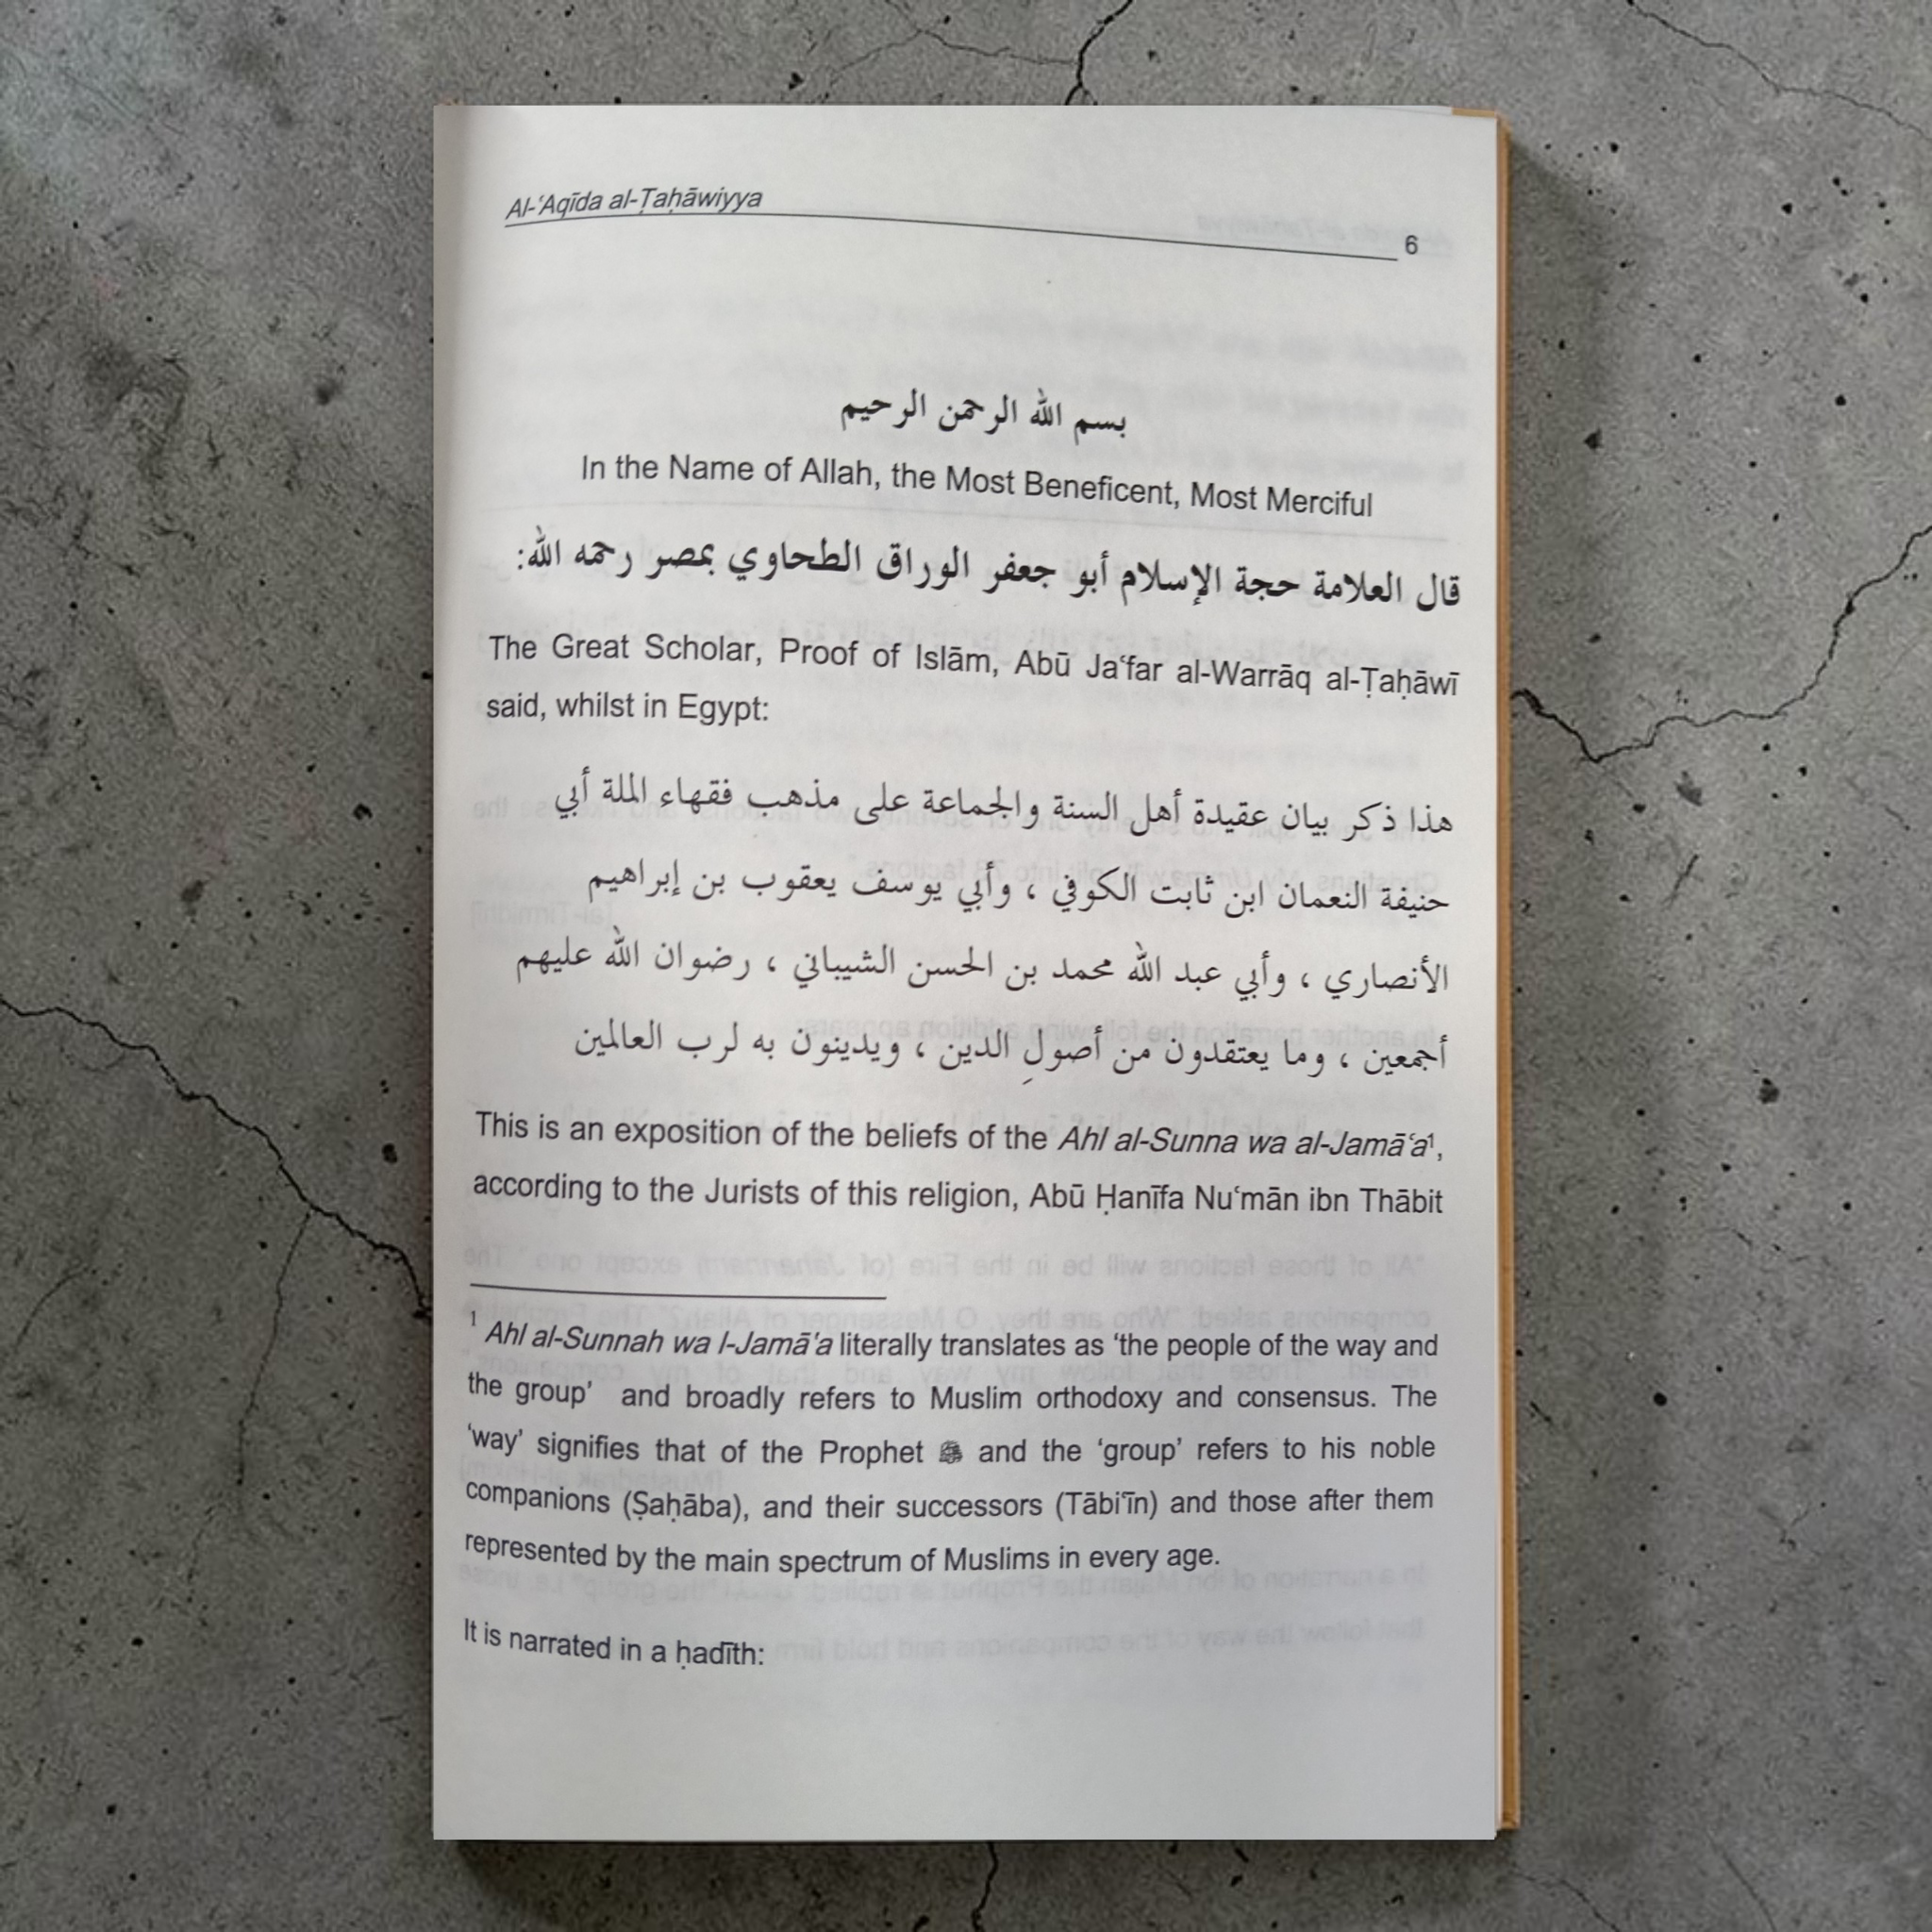 Al-‘Aqīda al-Ṭaḥāwiyya
6
بسم الله الرحمن الرحيم
In the Name of Allah, the Most Beneficent, Most Merciful
قال العلامة حجة الإسلام أبو جعفر الوراق الطحاوي بمصر رحمه الله:
The Great Scholar, Proof of Islām, Abū Ja‘far al-Warrāq al-Ṭaḥāwī
said, whilst in Egypt:
هذا ذكر بيان عقيدة أهل السنة والجماعة على مذهب فقهاء الملة أبي
حنيفة النعمان ابن ثابت الكوفي ، وأبي يوسف يعقوب بن إبراهيم
الأنصاري ، وأبي عبد الله محمد بن الحسن الشيباني ، رضوان الله عليهم
أجمعين ، وما يعتقدون من أصولِ الدين ، ويدينون به لرب العالمين
This is an exposition of the beliefs of the Ahl al-Sunna wa al-Jamā‘a¹,
according to the Jurists of this religion, Abū Ḥanīfa Nu‘mān ibn Thābit
¹ Ahl al-Sunnah wa l-Jamā‘a literally translates as ‘the people of the way and
the group’ and broadly refers to Muslim orthodoxy and consensus. The
‘way’ signifies that of the Prophet ﷺ and the ‘group’ refers to his noble
companions (Ṣaḥāba), and their successors (Tābi‘īn) and those after them
represented by the main spectrum of Muslims in every age.
It is narrated in a ḥadīth: